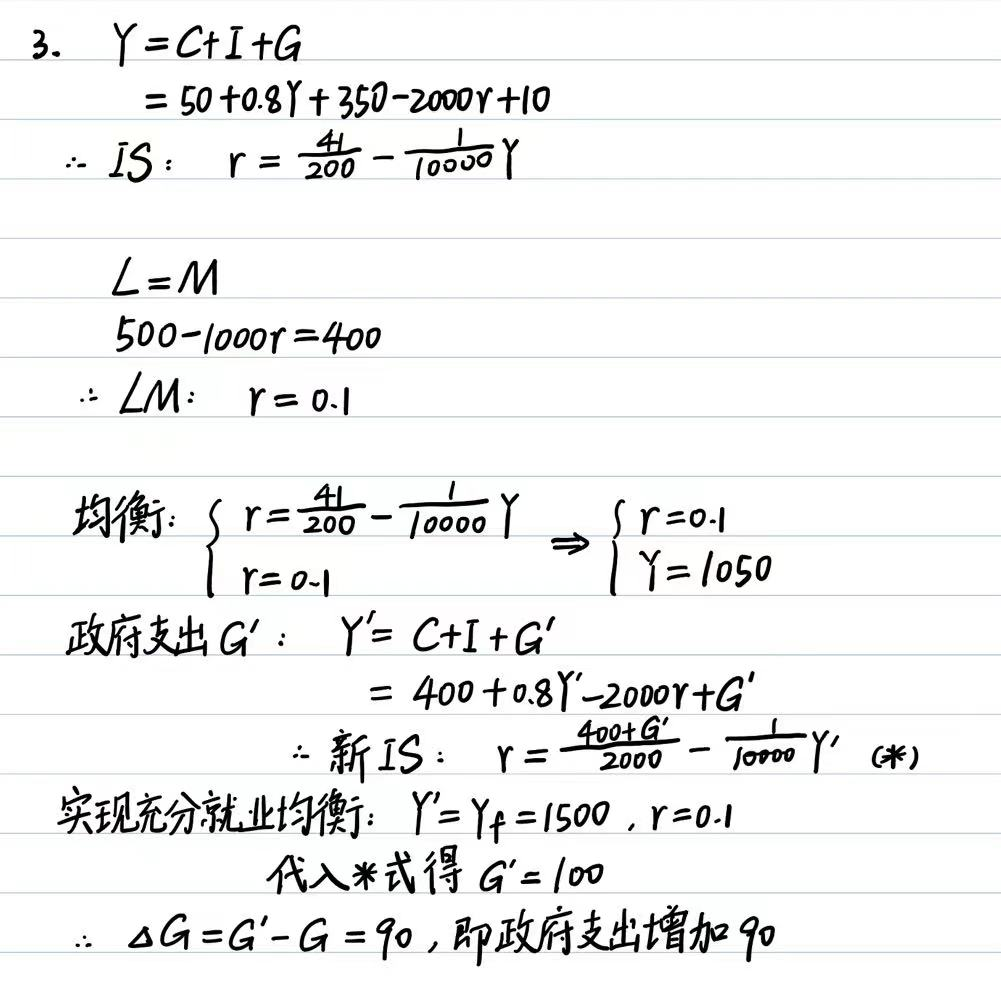 3. Y=C+I+G
=50+0.8Y+350-2000r+10
∴ IS: r = 41/200 - 1/10000 Y
L=M
500-1000r=400
∴ LM: r=0.1
均衡: { r=41/200 - 1/10000 Y
r=0.1 ⇒ { r=0.1
Y=1050
政府支出G′: Y′= C+I+G′
= 400+0.8Y′-2000r+G′
∴ 新IS: r = (400+G′)/2000 - 1/10000 Y′ (*)
实现充分就业均衡: Y′=Yf=1500, r=0.1
代入*式得 G′=100
∴ ΔG=G′-G=90, 即政府支出增加90